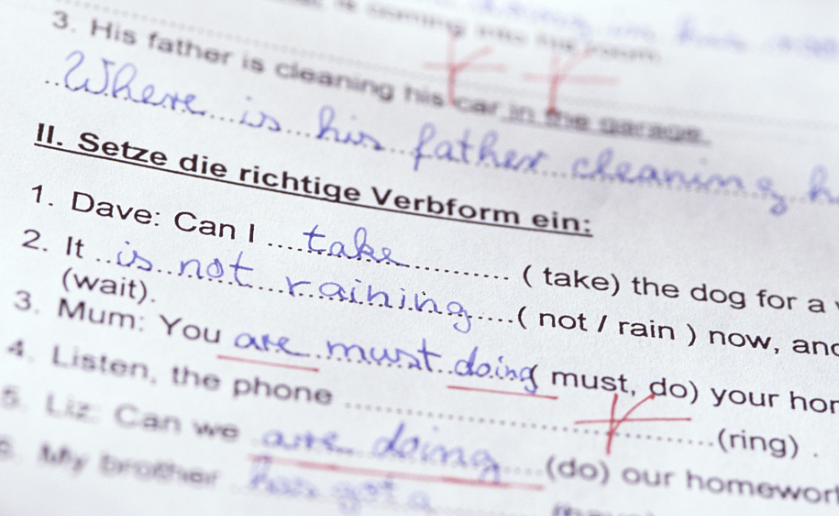 is coming into his room.
3. His father is cleaning his car in the garage.
..Where is his father cleaning h
II. Setze die richtige Verbform ein:
1. Dave: Can I ....take............... ( take) the dog for a
2. It ..is not raining.....( not / rain ) now, and
(wait).
3. Mum: You are must doing( must, do) your hor
4. Listen, the phone ........................................(ring) .
5. Liz: Can we are doing....(do) our homewor
6. My brother has got a